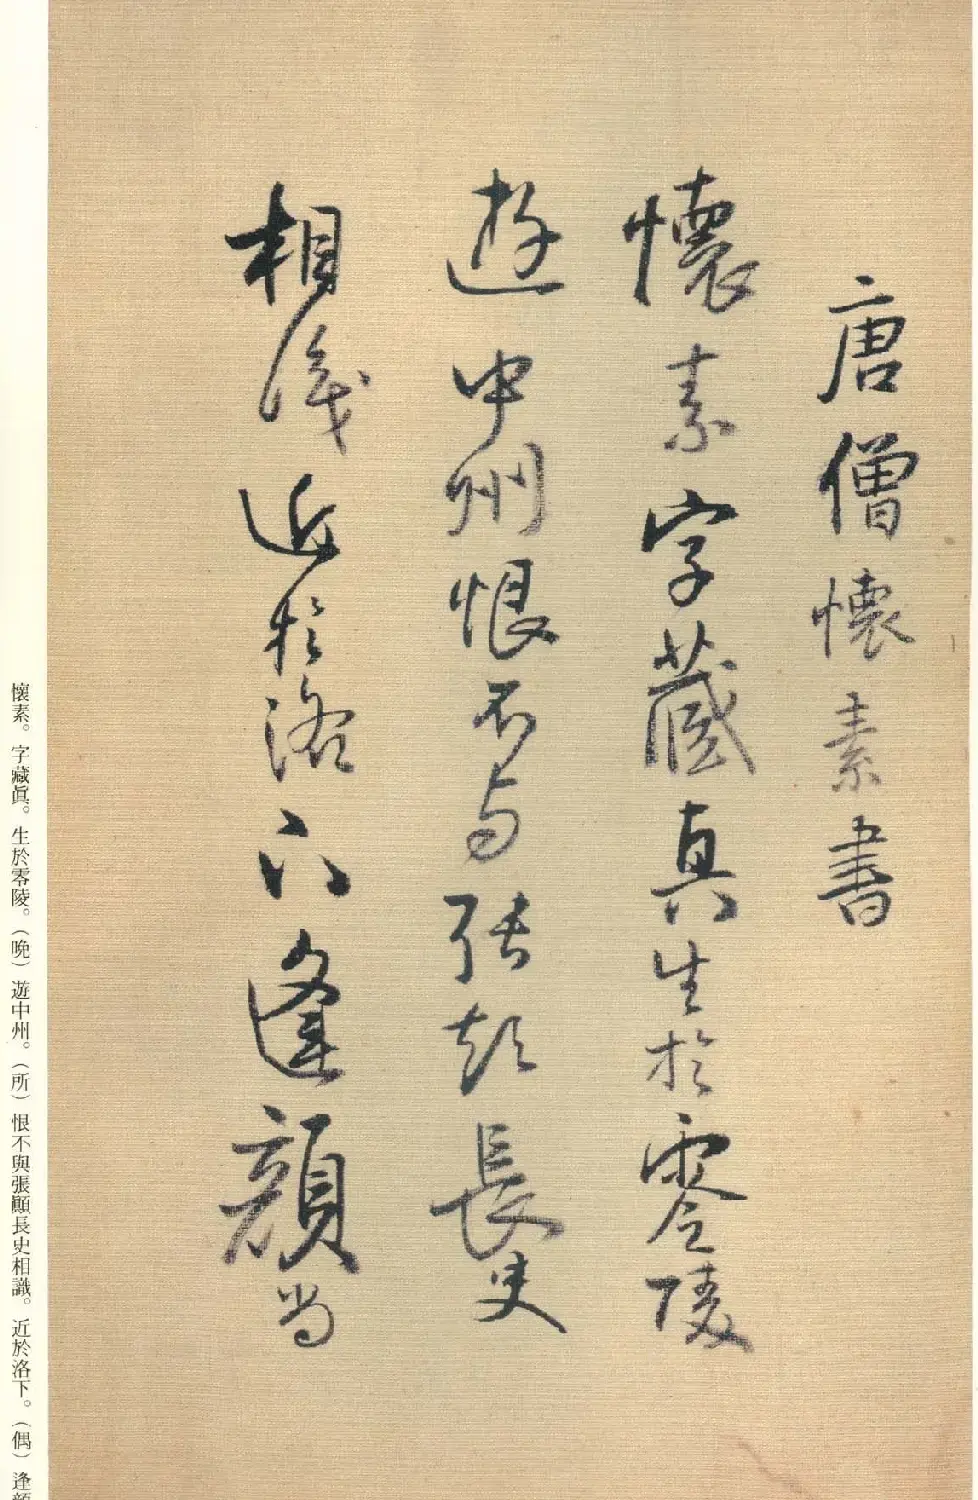 唐僧懷素書
懷素字藏真生於零陵
遊中州恨不与張顛長史
相識近於洛下逢顔尚
懷素。字藏眞。生於零陵。（晩）遊中州。（所）恨不與張顚長史相識。近於洛下。（偶）逢顔